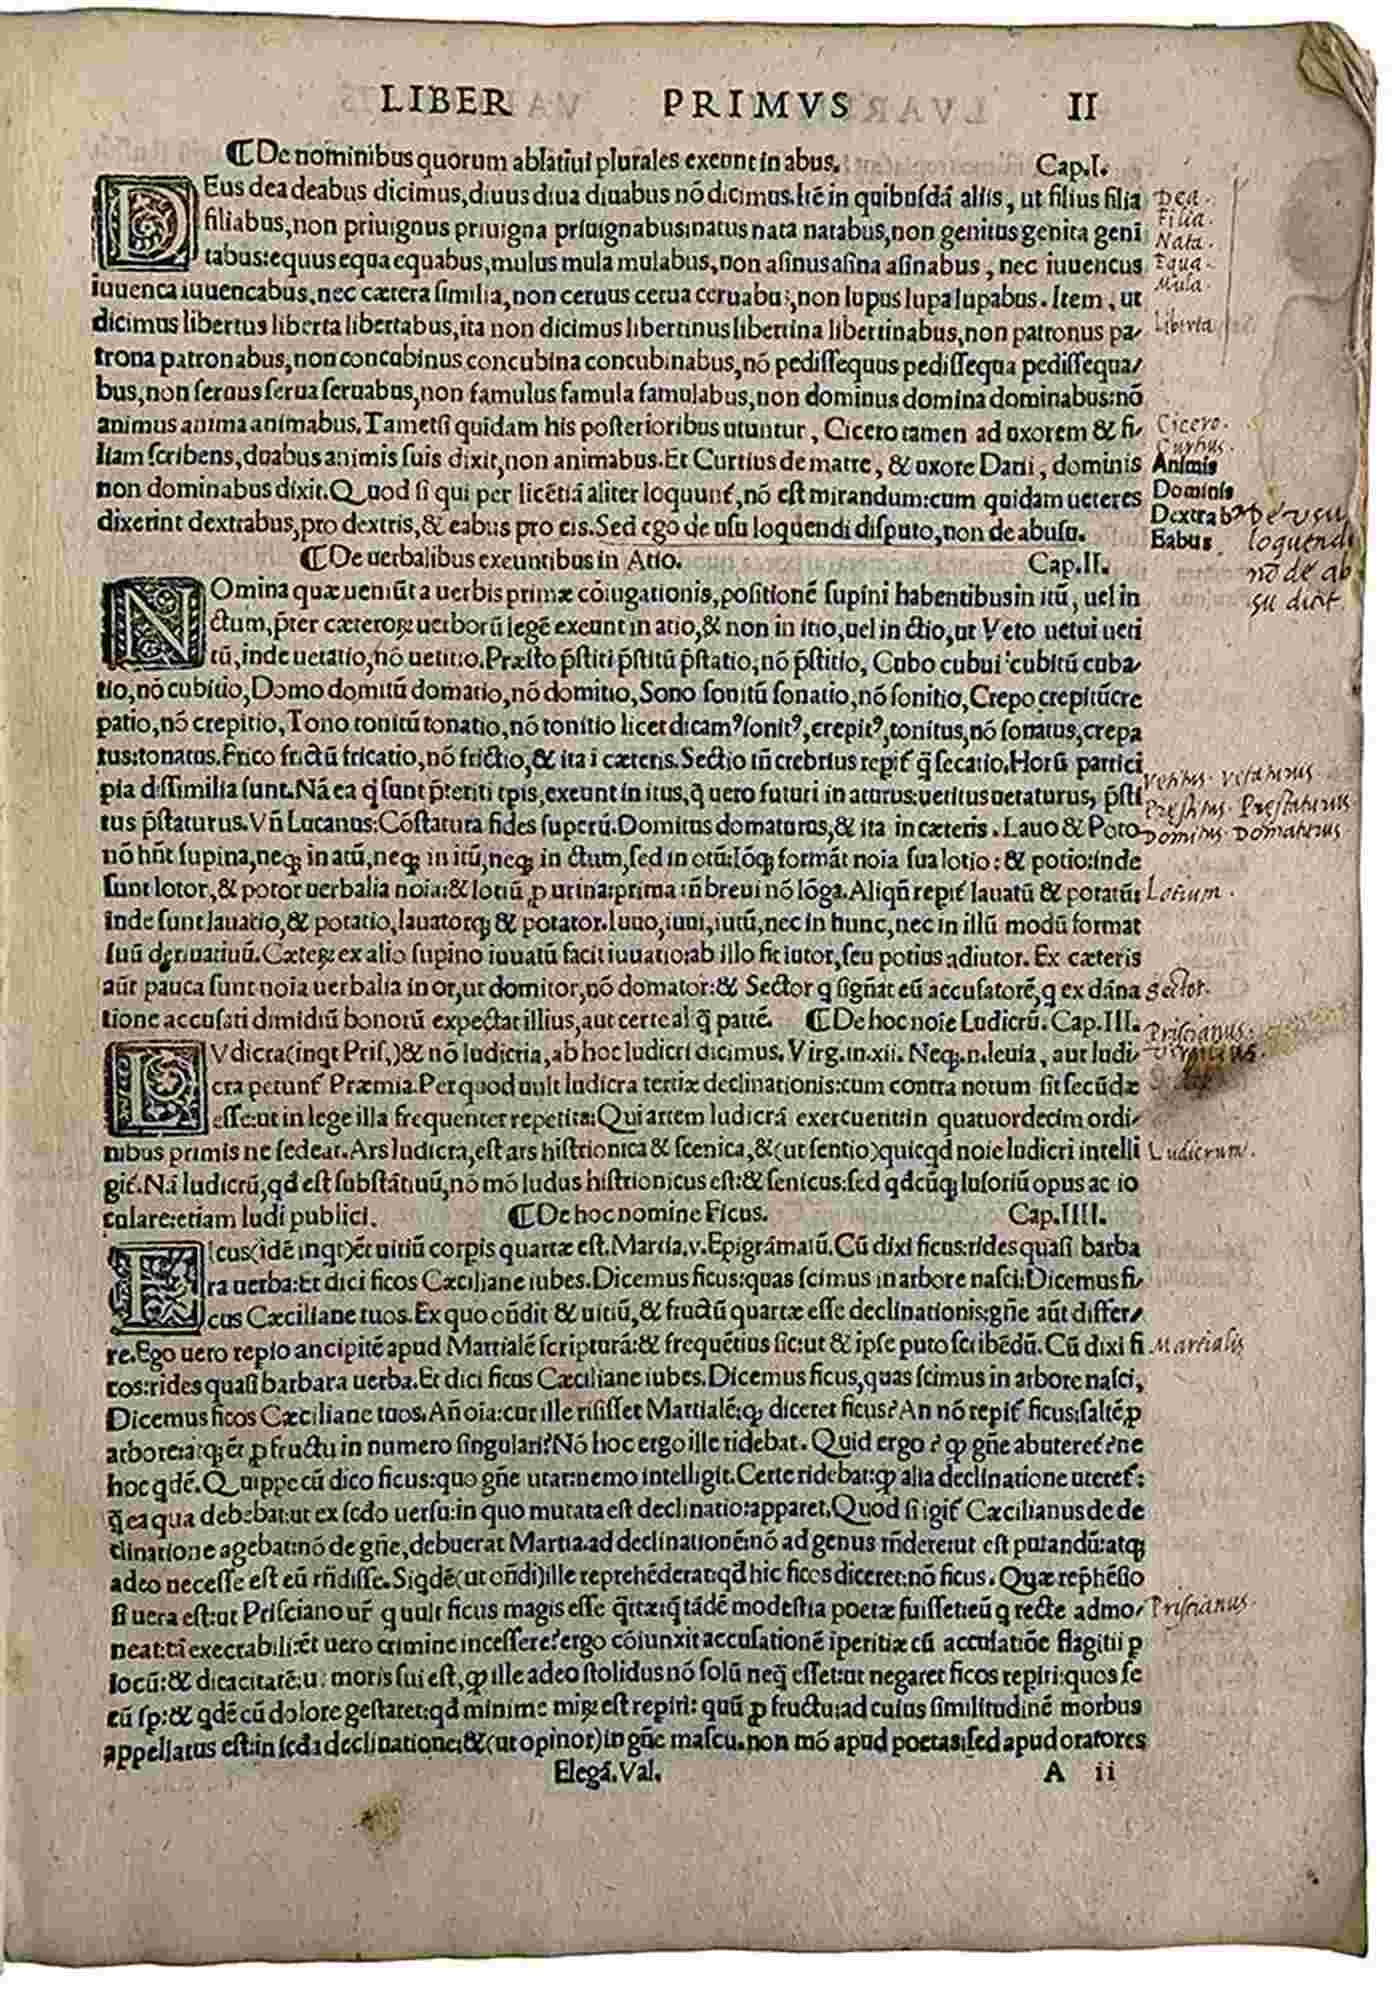 LIBER PRIMVS II
⸿De nominibus quorum ablatiui plurales exeunt in abus. Cap.I.
DEus dea deabus dicimus,diuus diua diuabus nō dicimus.Itē in quibusdā aliis, ut filius filia
filiabus,non priuignus priuigna priuignabus:natus nata natabus,non genitus genita geni
tabus:equus equa equabus,mulus mula mulabus,non asinus asina asinabus, nec iuuencus
iuuenca iuuencabus,nec cætera similia,non ceruus cerua ceruabus,non lupus lupa lupabus. Item, ut
dicimus libertus liberta libertabus,ita non dicimus libertinus libertina libertinabus,non patronus pa/
trona patronabus,non concubinus concubina concubinabus,nō pedissequus pedissequa pedissequa/
bus,non seruus serua seruabus,non famulus famula famulabus,non dominus domina dominabus:nō
animus anima animabus.Tametsi quidam his posterioribus utuntur, Cicero tamen ad uxorem & fi/
liam scribens,duabus animis suis dixit,non animabus.Et Curtius de matre, & uxore Darii, dominis
non dominabus dixit.Quod si qui per licētiā aliter loquunt̄,nō est mirandum:cum quidam ueteres
dixerint dextrabus,pro dextris,& eabus pro eis.Sed ego de usu loquendi disputo,non de abusu.
Dea.
Filia.
Nata.
Equa.
Mula.
Liberta
Cicero.
Curtius.
Animis
Dominis
Dextrabꝰ
Eabus
De usu
loquendi
nō de ab
su dicit.
⸿De uerbalibus exeuntibus in Atio. Cap.II.
NOmina quæ ueniūt a uerbis primæ cōiugationis,positionē supini habentibus in itū, uel in
ctum,p̄ter cæteroꝝ uerborū legē exeunt in atio,& non in itio,uel in ctio,ut Veto uetui ueti
tū,inde uetatio,nō uetitio.Præsto p̄stiti p̄stitū p̄statio,nō p̄stitio, Cubo cubui cubitū cuba/
tio,nō cubitio,Domo domitū domatio,nō domitio,Sono sonitū sonatio,nō sonitio,Crepo crepitū cre
patio,nō crepitio,Tono tonitū tonatio,nō tonitio licet dicamꝰ sonitꝰ,crepitꝰ,tonitus,nō sonatus,crepa
tus:tonatus.Frico frictū fricatio,nō frictio,& ita i cæteris.Sectio tn̄ crebrius repit̄ q̄ secatio.Horū partici
pia dissimilia sunt.Nā ea q̄ sunt p̄teriti tp̄is,exeunt in itus,q̄ uero futuri in aturus:uetitus uetaturus, p̄sti
tus p̄staturus.Vn̄ Lucanus:Cōstatura fides superū.Domitus domaturus,& ita in cæteris. Lauo & Poto
nō hn̄t supina,neqꝫ in atū,neqꝫ in itū,neqꝫ in ctum,sed in otū:lōgꝫ formāt noīa sua lotio: & potio:inde
sunt lotor,& potor uerbalia noīa:& lotiū ꝓ urina:prima tn̄ breui nō lōga.Aliqn̄ repit̄ lauatū & potatū:
inde sunt lauatio,& potatio,lauatorqꝫ & potator.Iuuo,iuui,iutū,nec in hunc,nec in illū modū format
suū deriuatiuū.Cæteꝝ ex alio supino iuuatū facit iuuatio:ab illo fit iutor,seu potius adiutor. Ex cæteris
aūt pauca sunt noīa uerbalia in or,ut domitor,nō domator:& Sector q signāt eū accusatorē,q ex dāna
tione accusati dimidiū bonorū expectat illius,aut certe al q̄ partē. ⸿De hoc noīe Ludicrū. Cap.III.
Vetitus. Vetaturus
Prestitus. Prestaturus
Domitus Domaturus
Lotium.
Sector.
Priscianus.
LVdicra(inqt Pris,)& nō ludicria, ab hoc ludicri dicimus. Virg.in.xii. Neqꝫ.n.leuia, aut ludi/
cra petunt̄ Præmia.Per quod uult ludicra tertiæ declinationis:cum contra notum sit secūdæ
esse:ut in lege illa frequenter repetita:Qui artem ludicrā exercuerit:in quatuordecim ordi/
nibus primis ne sedeat.Ars ludicra,est ars histrionica & scenica,&(ut sentio)quicqd noīe ludicri intelli
git̄.Nā ludicrū,qd est substātiuū,nō mō ludus histrionicus est:& senicus:sed qdcūqꝫ lusoriū opus ac io
culare:etiam ludi publici. ⸿De hoc nomine Ficus. Cap.IIII.
Ludicrum.
FIcus(idē inqt)ēt uitiū corpis quartæ est.Martia.v.Epigrāmatū.Cū dixi ficus:rides quasi barba
ra uerba:Et dici ficos Cæciliane iubes.Dicemus ficus:quas scimus in arbore nasci:Dicemus fi/
cus Cæciliane tuos.Ex quo oñdit & uitiū,& fructū quartæ esse declinationis:gn̄e aūt differ/
re.Ego uero repio ancipitē apud Martialē scripturā:& frequētius sic:ut & ipse puto scribēdū. Cū dixi fi
cos:rides quasi barbara uerba.Et dici ficus Cæciliane iubes.Dicemus ficus,quas scimus in arbore nasci,
Dicemus ficos Cæciliane tuos.An̄ oīa:cur ille risisset Martialē:qꝫ diceret ficus?An nō repit̄ ficus:saltē ꝓ
arbore:atqꝫ ēt ꝓ fructu in numero singulari?Nō hoc ergo ille ridebat. Quid ergo? qꝫ gn̄e abuteret̄?ne
hoc qdē.Quippe cū dico ficus:quo gn̄e utar:nemo intelligit.Certe ridebat:qꝫ alia declinatione uteret̄:
q̄ ea qua debebat:ut ex scdo uersu:in quo mutata est declinatio:apparet.Quod si igit̄ Cæcilianus de de
clinatione agebat:nō de gn̄e,debuerat Martia.ad declinationē:nō ad genus rn̄dere:ut est putandū:atqꝫ
adeo necesse est eū rn̄disse.Siqdē(ut oñdi)ille reprehēderat:qd hic ficos diceret:nō ficus. Quæ rep̄hēsio
si uera est:ut Prisciano ur̄ q uult ficus magis esse q̄rtæ:q̄ tādē modestia poetæ fuisset:eū q recte admo/
neat:tā execrabili:ēt uero crimine incessere?ergo cōiunxit accusationē iperitiæ cū accusatiōe flagitii ꝓ
locū:& dicacitatē:ut moris sui est,qꝫ ille adeo stolidus nō solū neq̄ esset:ut negaret ficos repiri:quos se
cū sp:& qdē cū dolore gestaret:qd minime miꝝ est repiri: quū ꝓ fructu:ad cuius similitudinē morbus
appellatus est:in scda declinatione:&(ut opinor)in gn̄e mascu.non mō apud poetas:sed apud oratores
Martialis
Priscianus.
Elegā.Val. A ii